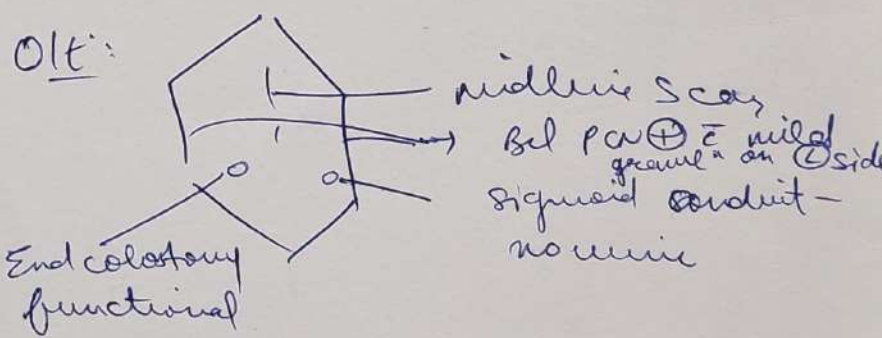 O/E:
midline scar
B/L PCN ⊕ c̄ mild
granulⁿ on Ⓛ side
sigmoid conduit -
no urine
End colostomy
functional